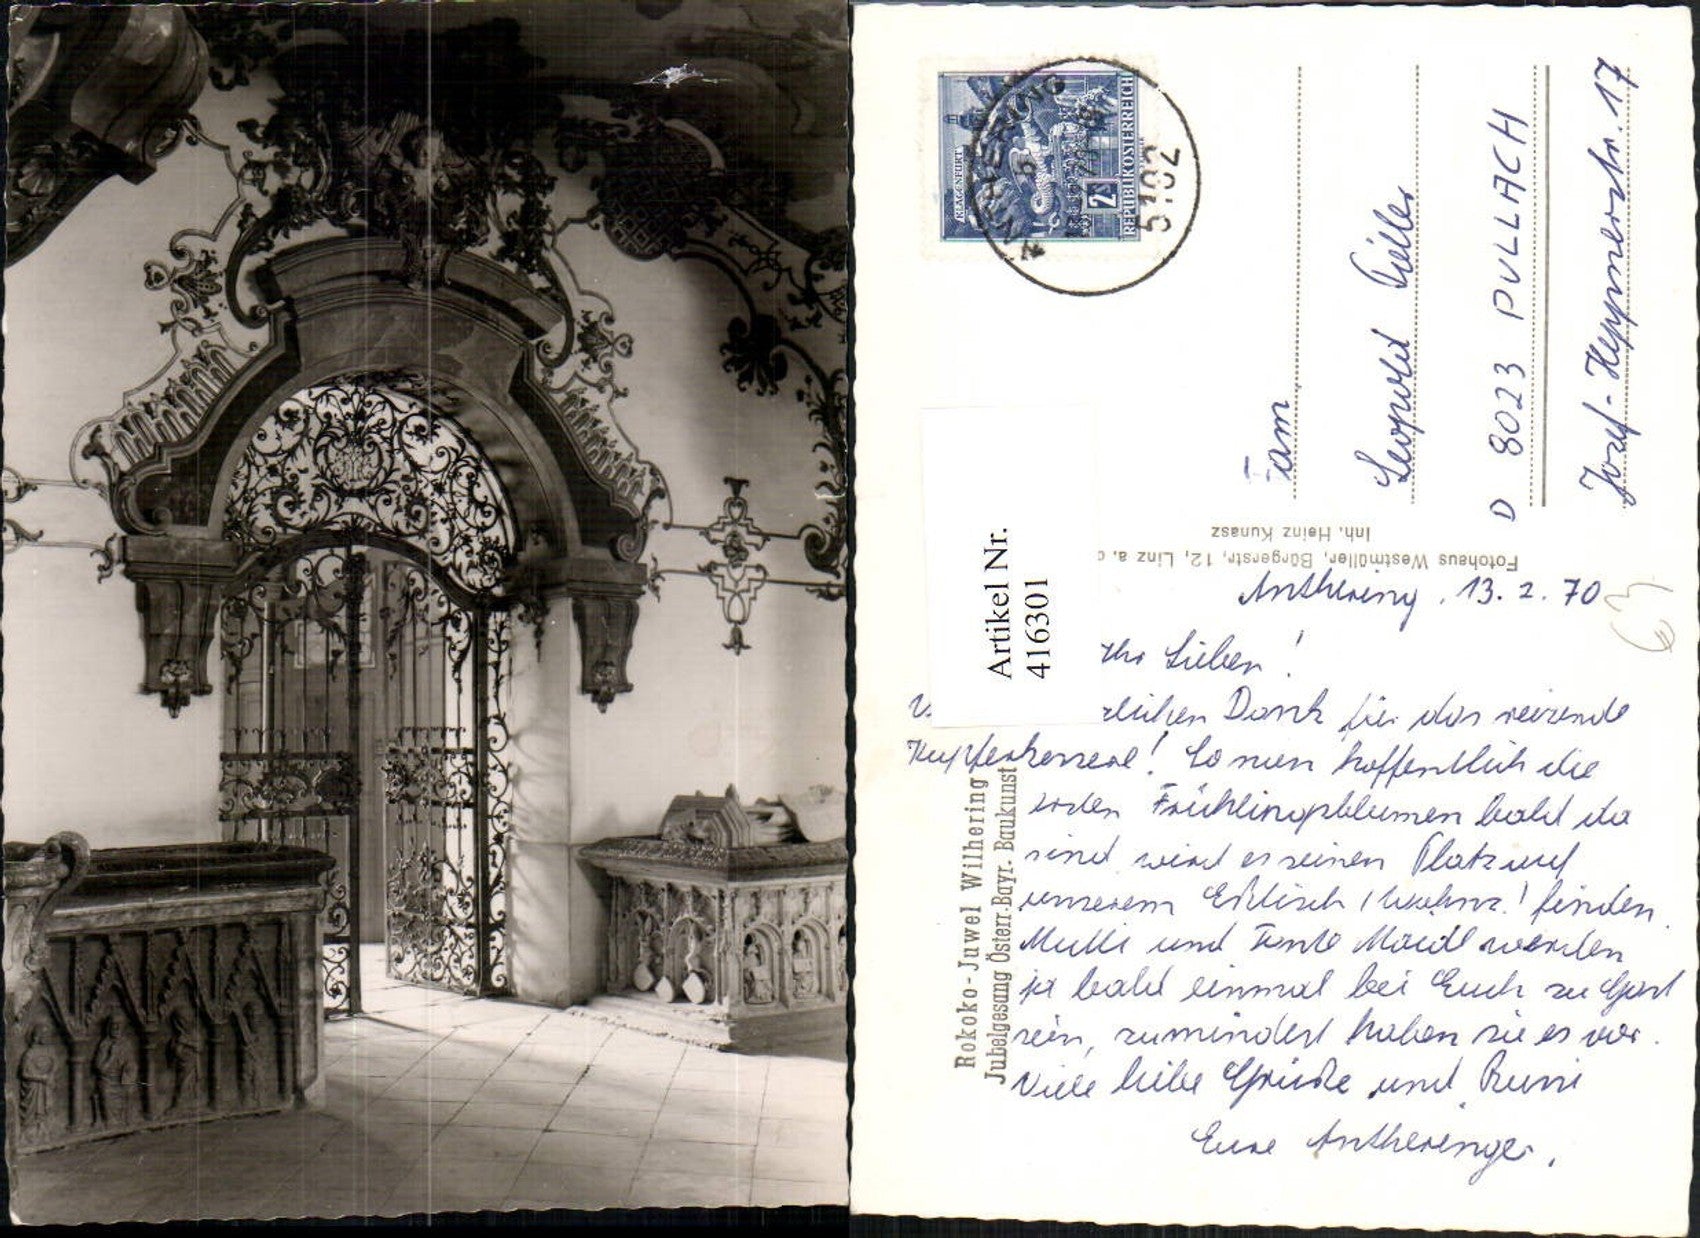 KLAGENFURT
2 S
REPUBLIK ÖSTERREICH
ANTHERING
5102
Fam
Leopold
D 8023 PULLACH
Josef-Heppnerstr. 17
Fotohaus Westmüller, Bürgerstr. 12, Linz a. d
Inh. Heinz Kunasz
Artikel Nr.
416301
Rokoko-Juwel Wilhering
Jubelgesang Österr.-Bayr. Baukunst
Anthering, 13. 2. 70
Ihr Lieben!
zlichen Dank für das reizende
Kupferkesserl! Wenn hoffentlich die
ersten Frühlingsblumen bald da
sind wird es seinen Platz auf
unserem Eßtisch (Wohnz.) finden.
Mutti und Tante Maidl werden
ja bald einmal bei Euch zu Gast
sein, zumindest haben sie es vor.
Viele liebe Grüße und Bussi
Eure Antheringer.